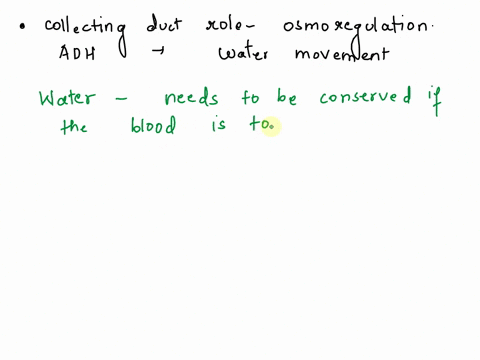 • collecting duct role- osmoregulation.
ADH → water movement
Water - needs to be conserved if
the blood is to